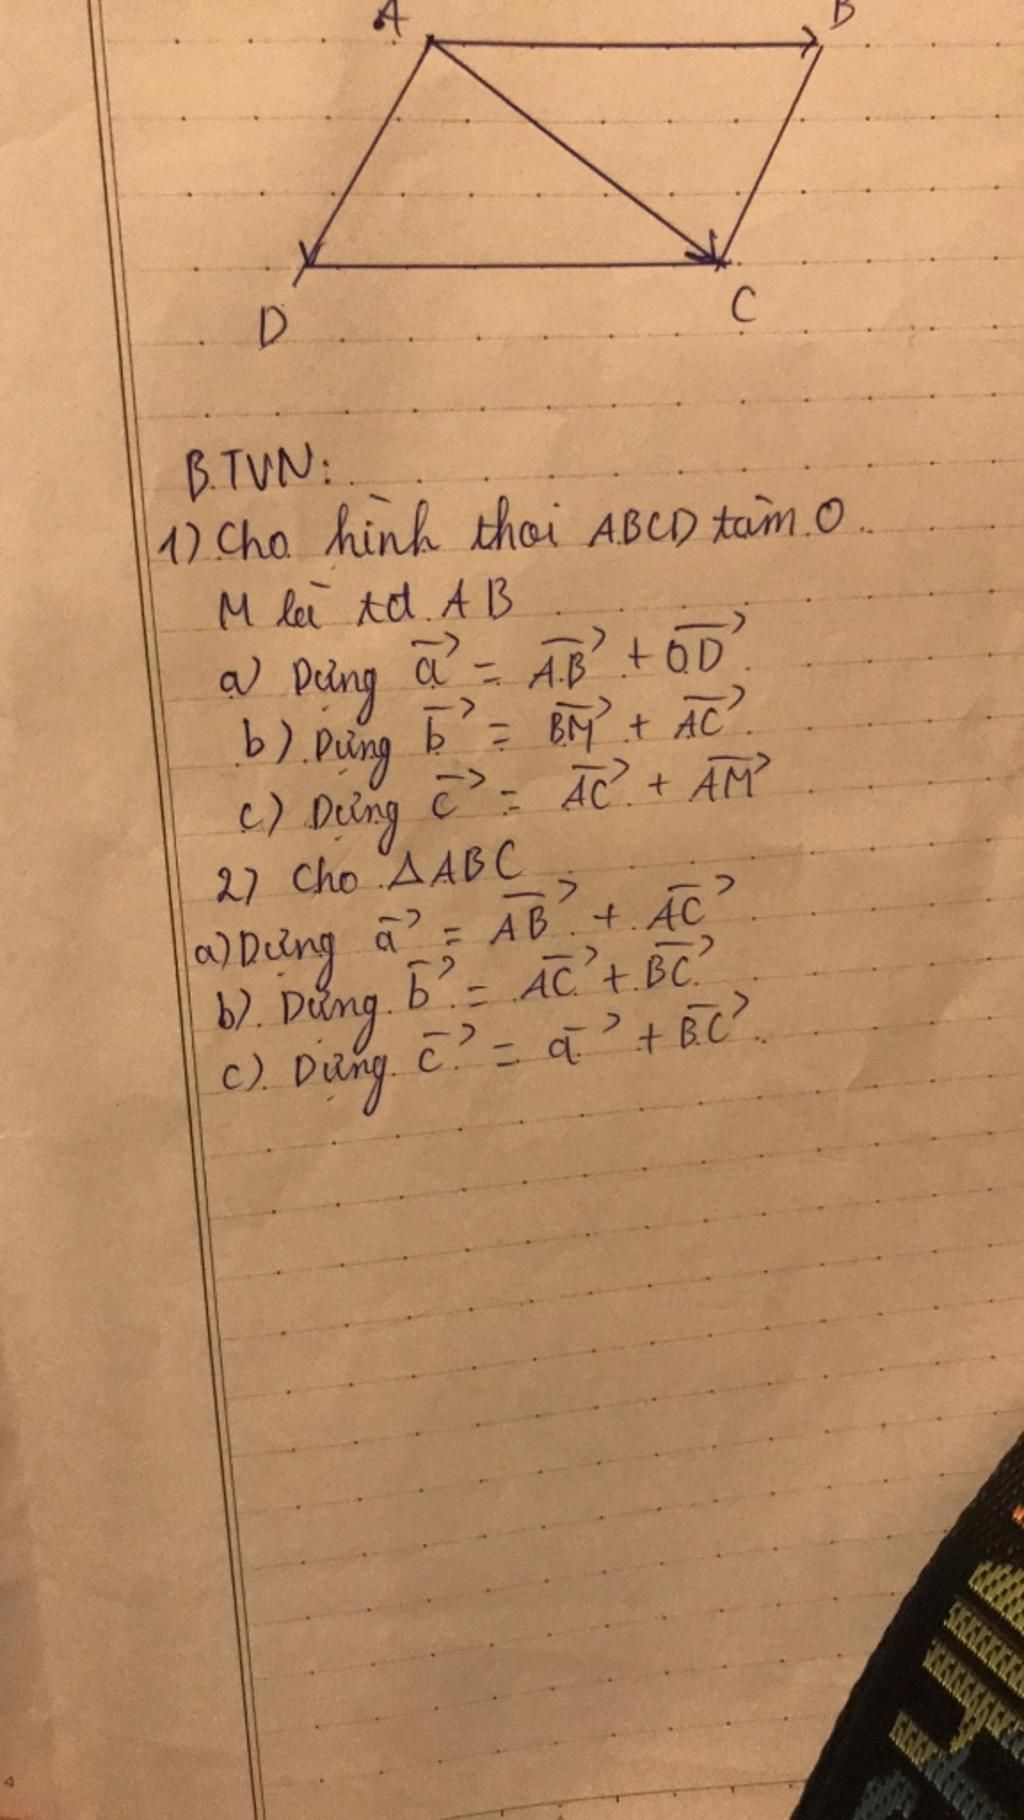 A B
D C
B.TVN:
1) Cho hình thoi ABCD tâm O.
M là td AB
a) Dựng a⃗ = AB⃗ + OD⃗
b) Dựng b⃗ = BM⃗ + AC⃗
c) Dựng c⃗ = AC⃗ + AM⃗
2) Cho ΔABC
a) Dựng a⃗ = AB⃗ + AC⃗
b) Dựng b⃗ = AC⃗ + BC⃗
c) Dựng c⃗ = a⃗ + BC⃗.